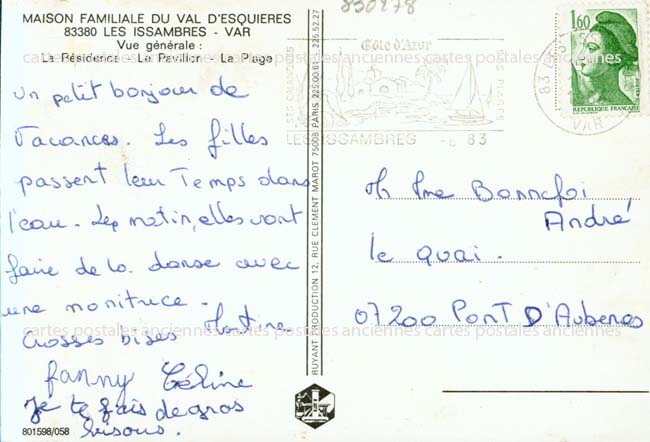 830878
MAISON FAMILIALE DU VAL D'ESQUIERES
83380 LES ISSAMBRES - VAR
Vue générale :
La Résidence - Le Pavillon - La Plage
un petit bonjour de
Vacances. Les filles
passent leur Temps dans
l'eau. Les matin, elles vont
faire de la danse avec
une monitrice.
Grosses bises Martine
fanny Céline
Je te fais de gros
bisous.
801598/058
RUYANT PRODUCTION 12, RUE CLEMENT MAROT 75008 PARIS 225.00.61 / 225.52.27
Côte d'Azur
SES CALANQUES
SES PLAGES
LES ISSAMBRES
83
VAR
1,60
REPUBLIQUE FRANÇAISE
Mr Mme Bonnefoi
André
le quai.
07200 PONT D'Aubenas
cartes postales anciennes cartes postales anciennes cartes postales anciennes
cartes postales anciennes cartes postales anciennes cartes postales anciennes